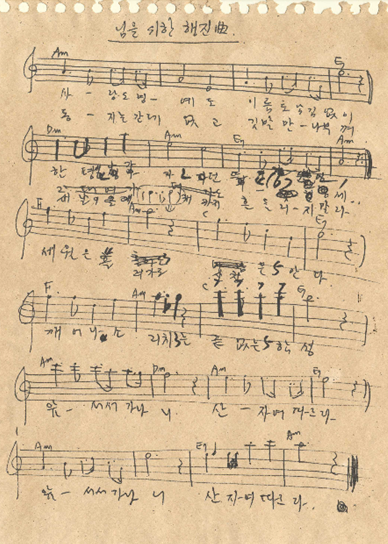 님을 위한 행진曲.
Am E7
사 - 랑도 명 - 예도 이름도 남김 없이
동 - 지는 간데 없고 깃발만 - 나부껴
Dm Am E7 Am
한 평생 세
새 흔들리 - 지말라.
F Am C E7
세월은 은 안다
F Am C E7
깨어나 소 리치는 끝 없는 함성
Am Dm Am E7
앞 - 서서 가나 니. 산 - 자여 따르라.
Am E7 Am
앞 - 서서 가나 니 산자여 따르라.